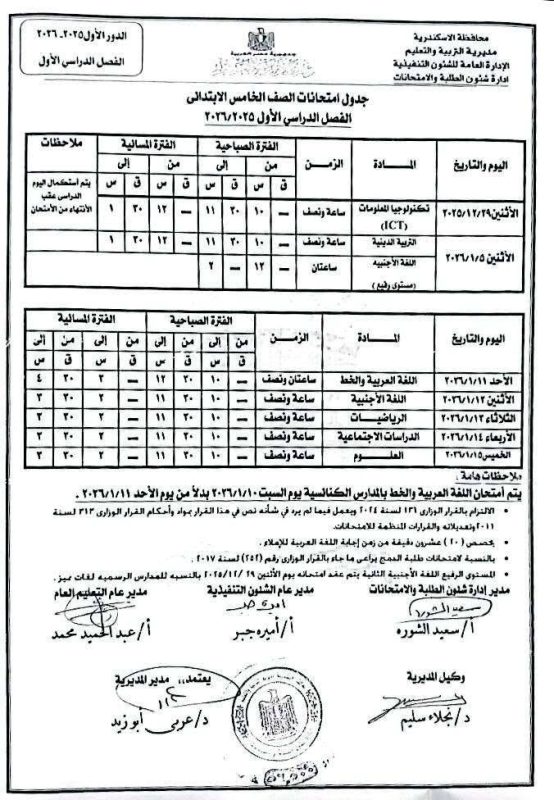 محافظة الاسكندرية
مديرية التربية والتعليم
الإدارة العامة للشئون التنفيذية
ادارة شئون الطلبة والامتحانات
جمهورية مصر العربية
الدور الأول ٢٠٢٥-٢٠٢٦
الفصل الدراسي الأول
جدول امتحانات الصف الخامس الابتدائى
الفصل الدراسي الأول ٢٠٢٦/٢٠٢٥
اليوم والتاريخ المــادة الزمن الفترة الصباحية الفترة المسائية ملاحظات
من إلى من إلى
ق س ق س ق س ق س
الأثنين ٢٠٢٥/١٢/٢٩ تكنولوجيا المعلومات (ICT) ساعة ونصف — ١٠ ٣٠ ١١ — ١٢ ٣٠ ١ يتم أستكمال اليوم الدراسى عقب الأنتهاء من الأمتحان
الأثنين ٢٠٢٦/١/٥ التربية الدينية ساعة ونصف — ١٠ ٣٠ ١١ — ١٢ ٣٠ ١
اللغة الأجنبيه (مستوى رفيع) ساعتان — ١٢ — ٢
اليوم والتاريخ المــادة الزمن الفترة الصباحية الفترة المسائية
من إلى من إلى
ق س ق س ق س ق س
الأحد ٢٠٢٦/١/١١ اللغة العربية والخط ساعتان ونصف — ١٠ ٣٠ ١٢ — ٢ ٣٠ ٤
الأثنين ٢٠٢٦/١/١٢ اللغة الأجنبية ساعة ونصف — ١٠ ٣٠ ١١ — ٢ ٣٠ ٣
الثلاثاء ٢٠٢٦/١/١٣ الرياضيات ساعة ونصف — ١٠ ٣٠ ١١ — ٢ ٣٠ ٣
الأربعاء ٢٠٢٦/١/١٤ الدراسات الاجتماعية ساعة ونصف — ١٠ ٣٠ ١١ — ٢ ٣٠ ٣
الخميس ٢٠٢٦/١/١٥ العلـــوم ساعة ونصف — ١٠ ٣٠ ١١ — ٢ ٣٠ ٣
ملاحظات هامة :
يتم أمتحان اللغة العربية والخط بالمدارس الكنائسية يوم السبت ٢٠٢٦/١/١٠ بدلاً من يوم الأحد ٢٠٢٦/١/١١ .
الالتزام بالقرار الوزارى ١٣١ لسنة ٢٠٢٤ ويعمل فيما لم يرد في شأنه نص في هذا القرار بمواد وأحكام القرار الوزارى ٣١٣ لسنة
٢٠١١ وتعديلاته والقرارات المنظمة للامتحانات.
يخصص (٢٠) عشرون دقيقة من زمن إجابة اللغة العربية للإملاء .
بالنسبة لامتحانات طلبة الدمج يراعى ما جاء بالقرار الوزارى رقم (٢٥٢) لسنة ٢٠١٧ .
المستوى الرفيع اللغة الأجنبية الثانية يتم عقد امتحانه يوم الأثنين ٢٩ /١٢ /٢٠٢٥ بالنسبه للمدارس الرسميه لغات مميز .
مدير إدارة شئون الطلبة والامتحانات مدير عام الشئون التنفيذية مدير عام التعليم العام
أ/ سعيد الشوره أ/ أميره جبر أ/ عبد الحميد محمد
وكيل المديرية يعتمد،، مدير المديرية
د/ نجلاء سليم د/ عربى أبو زيد